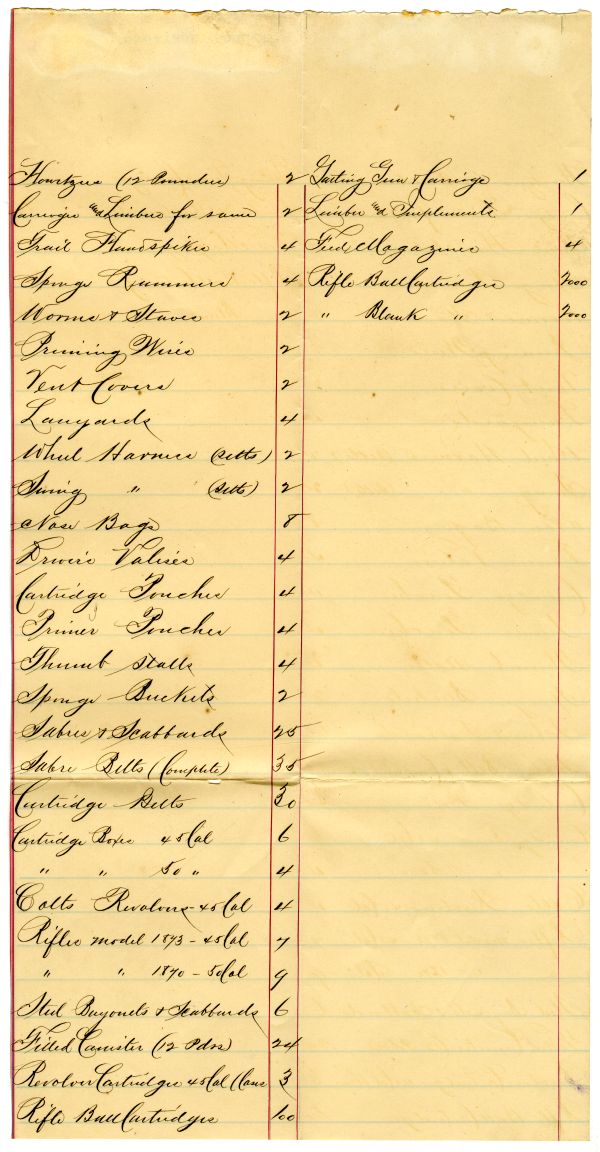 Howitzers (12 Pounders) 2
Carriages and Limbers for same 2
Trail Handspikes 4
Sponge Rammers 4
Worms & Staves 2
Priming Wires 2
Vent Covers 2
Lanyards 4
Wheel Harness (Setts) 2
Swing " (Setts) 2
Nose Bags 8
Drivers Valises 4
Cartridge Pouches 4
Primer Pouches 4
Thumb Stalls 4
Sponge Buckets 2
Sabres & Scabbards 25
Sabre Belts (Complete) 35
Cartridge Belts 30
Cartridge Boxes 45 Cal 6
" " 50 " 4
Colts Revolvers - 45 Cal 4
Rifles model 1873 - 45 Cal 7
" " 1870 - 50 Cal 9
Steel Bayonets & Scabbards 6
Filled Canister (12 Pdrs) 24
Revolver Cartridges 45 Cal 3
Rifle Ball Cartridges 100
Gatling Gun & Carriage 1
Limber and Implements 1
Feed Magazines 4
Rifle Ball Cartridges 2000
" Blank " 2000